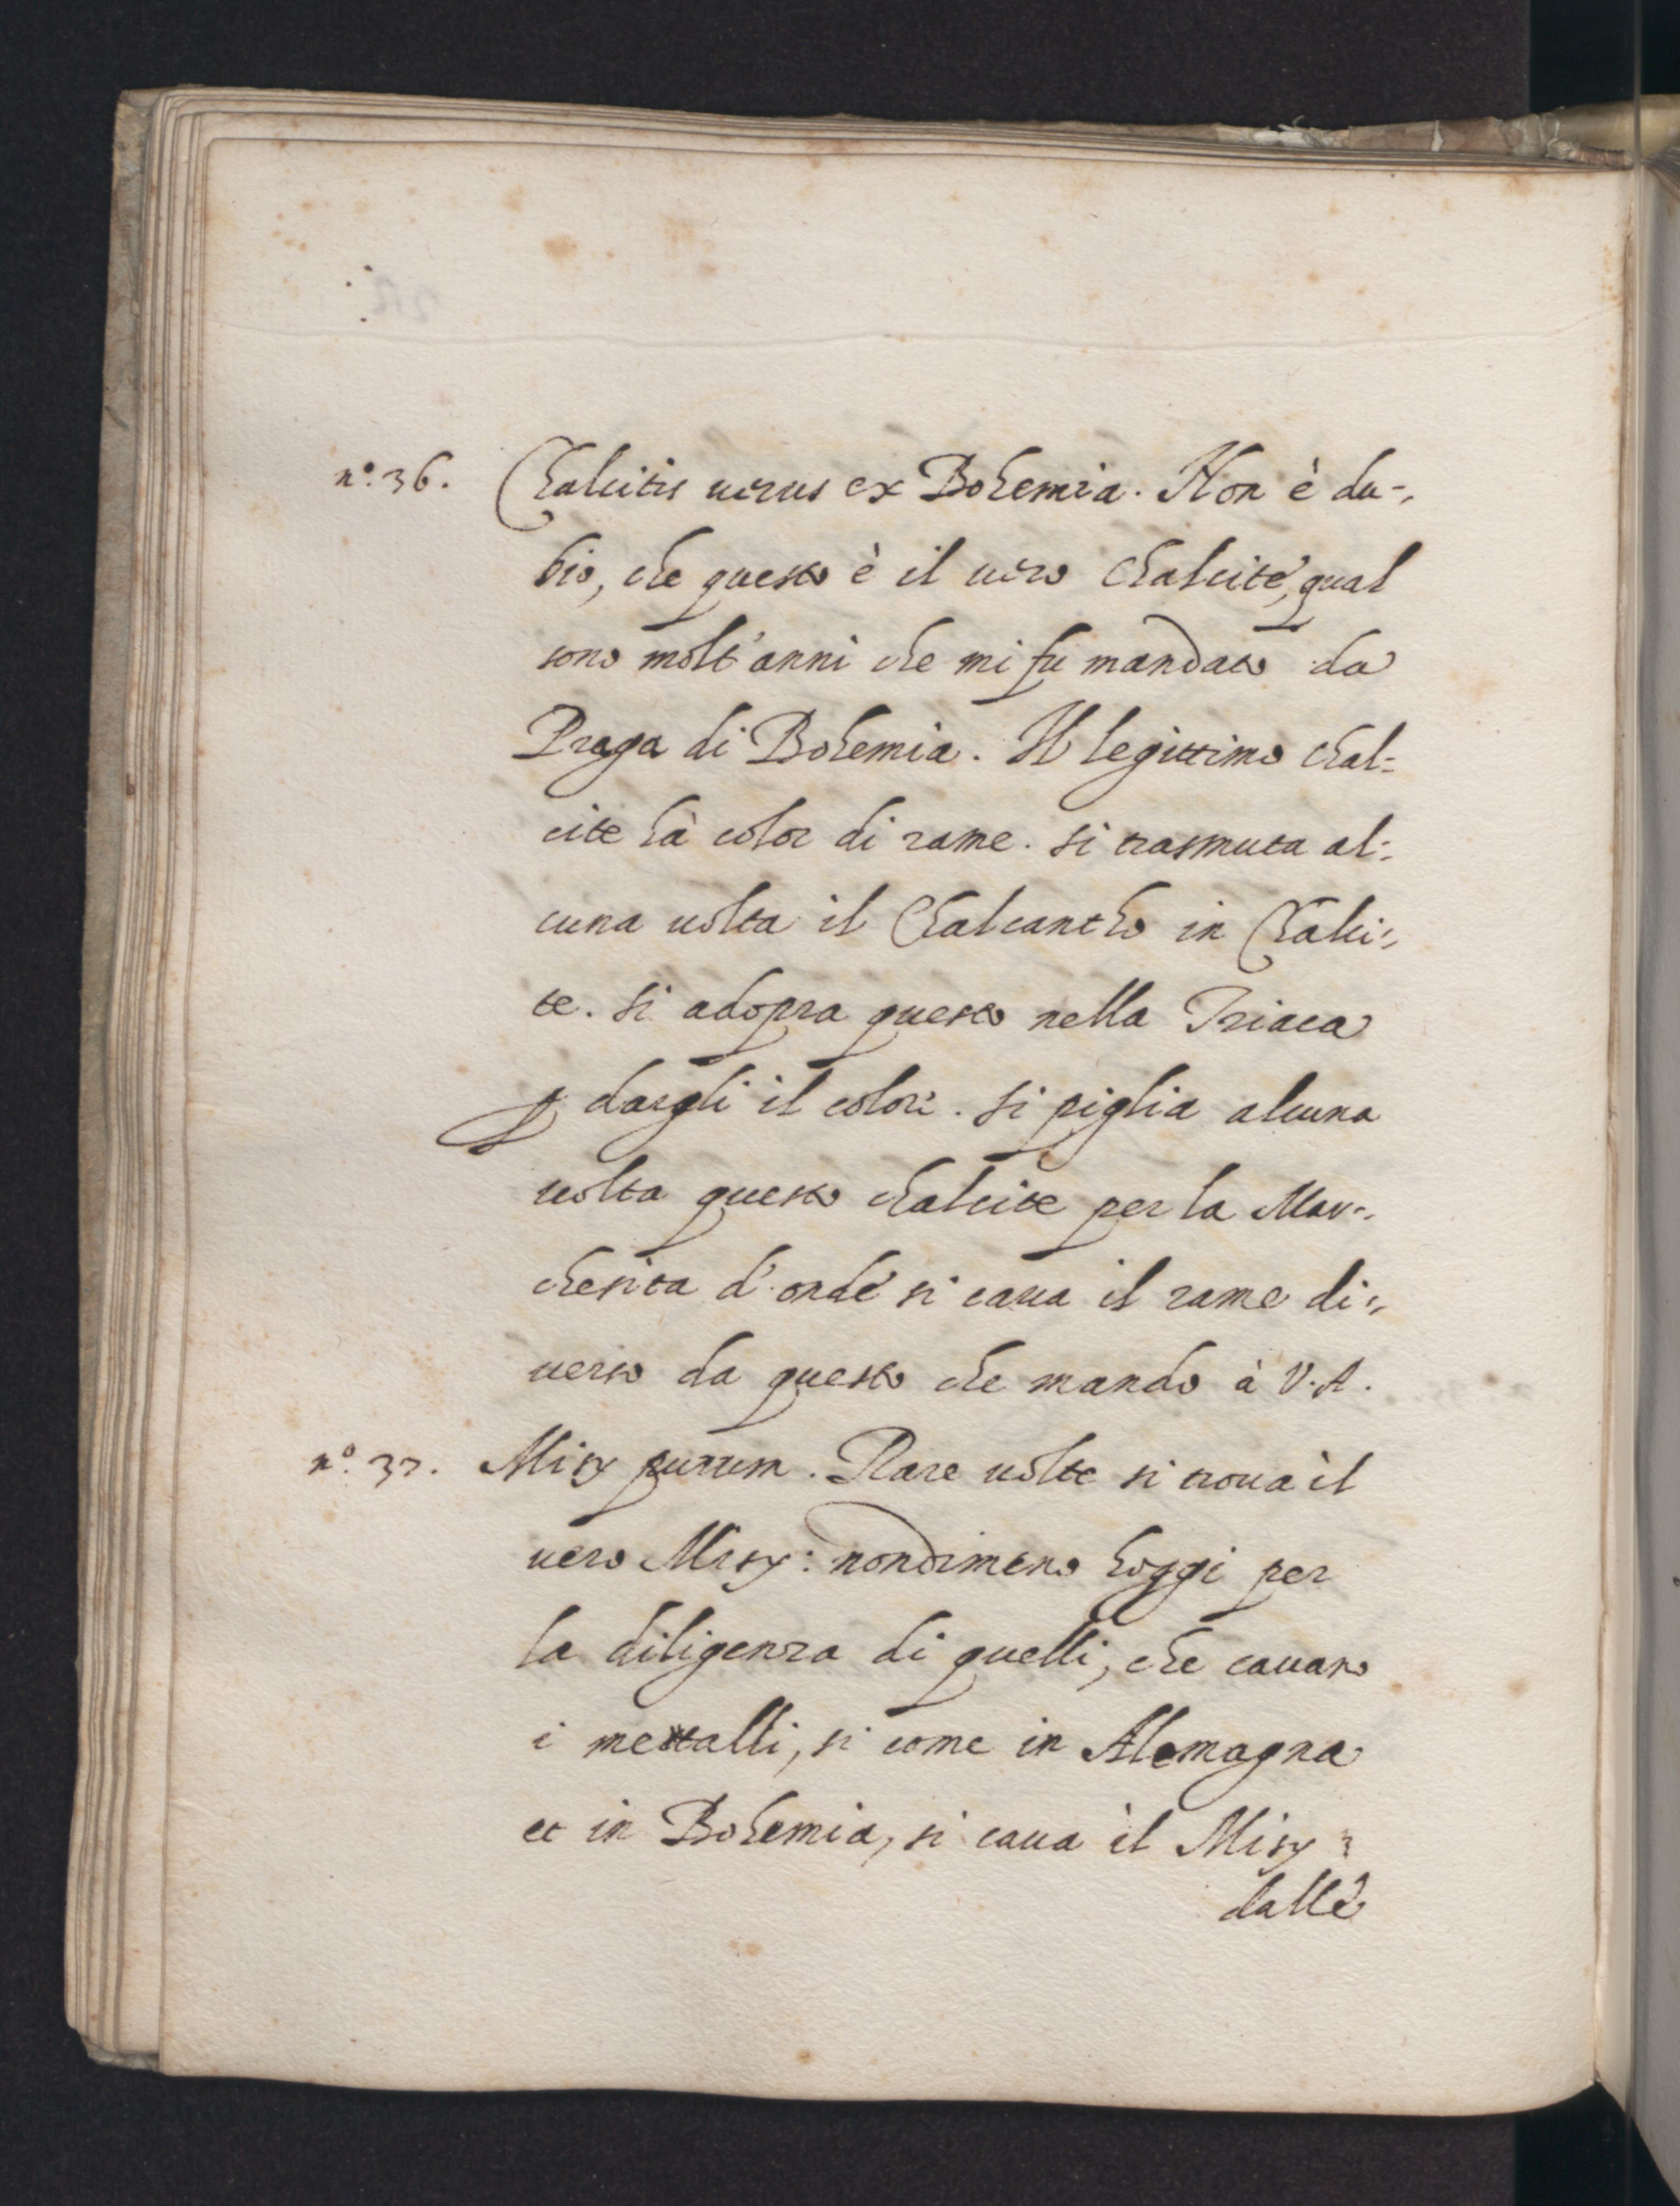 n.º 36. Chalcitis uerus ex Bohemia. Non è du-
bio, che questo è il uero Chalcite, qual
sono molt'anni che mi fu mandato da
Praga di Bohemia. Il legittimo Chal=
cite hà color di rame. si trasmuta al=
cuna uolta il Chalcantho in Chalci=
te. si adopra questo nella Triaca
ꝑ dargli il colore. si piglia alcuna
uolta questo chalcite per la Mar=
chesita d'onde si caua il rame di=
uerso da questo che mando à V.A.
n.º 37. Misy purum. Rare uolte si troua il
uero Misy: nondimeno hoggi per
la diligenza di quelli, che cauano
i mettalli, si come in Alemagna
et in Bohemia, si caua il Misy
dalle